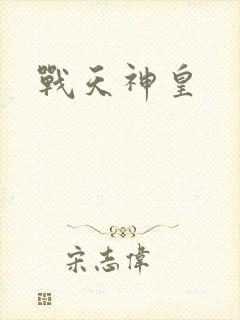 戰天神皇
宋志偉